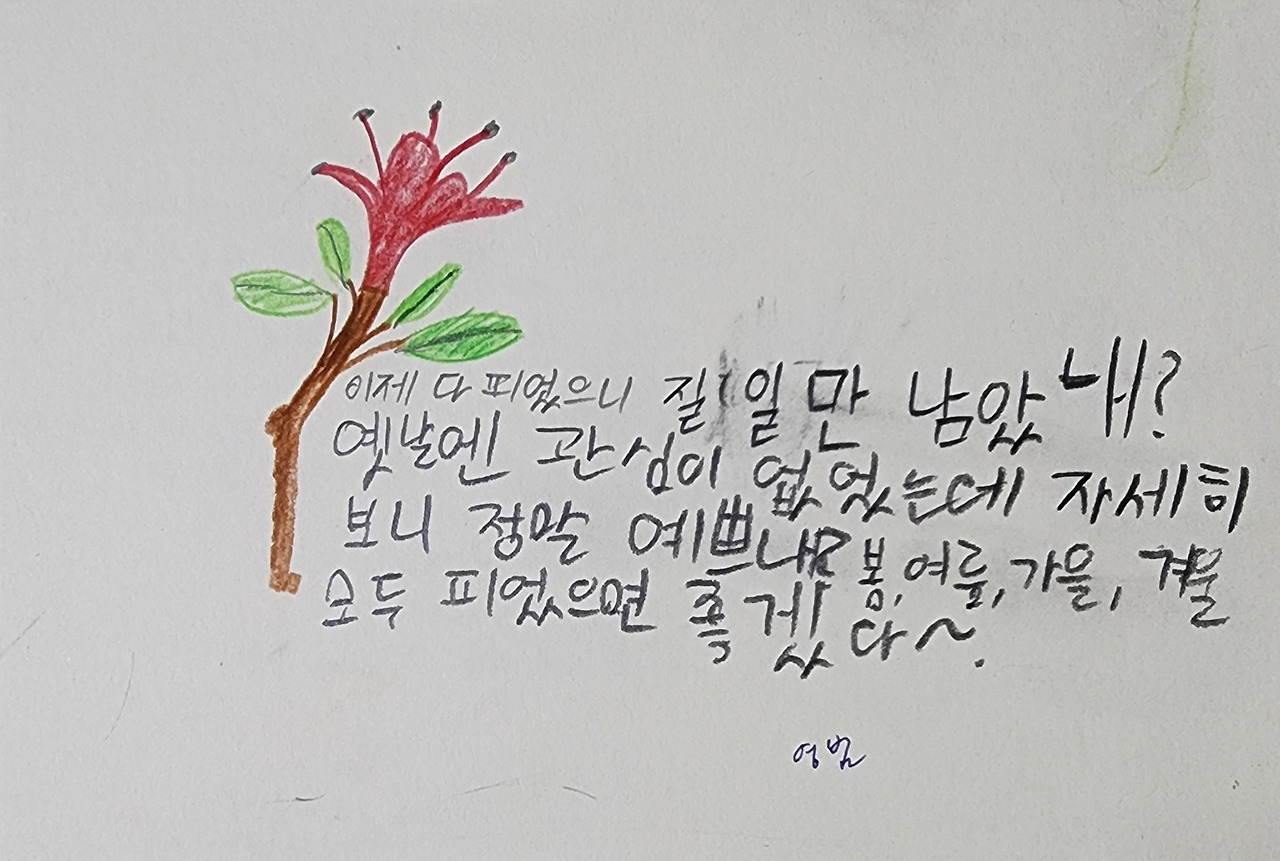 이제 다 피었으니 질 일만 남았내?
옛날엔 관심이 없었는데 자세히
보니 정말 예쁘내? 봄, 여름, 가을, 겨울
모두 피었으면 좋겠다~.
영범